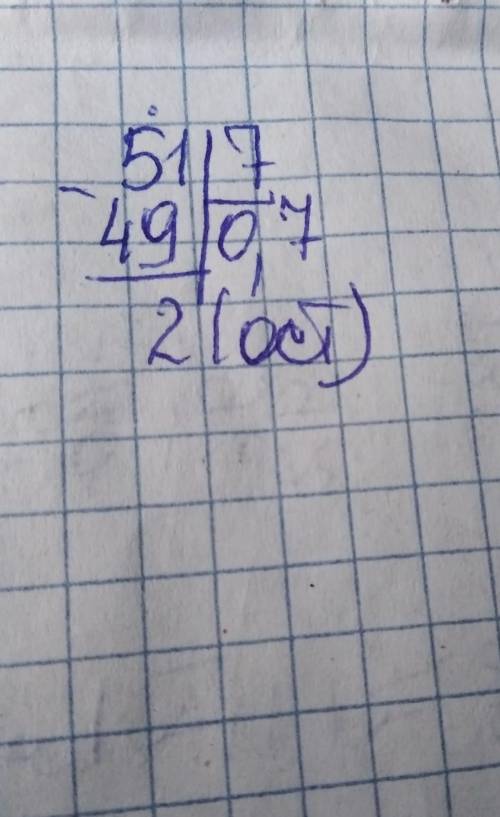 51 | 7
- 49 | 0,7
2 (ост)